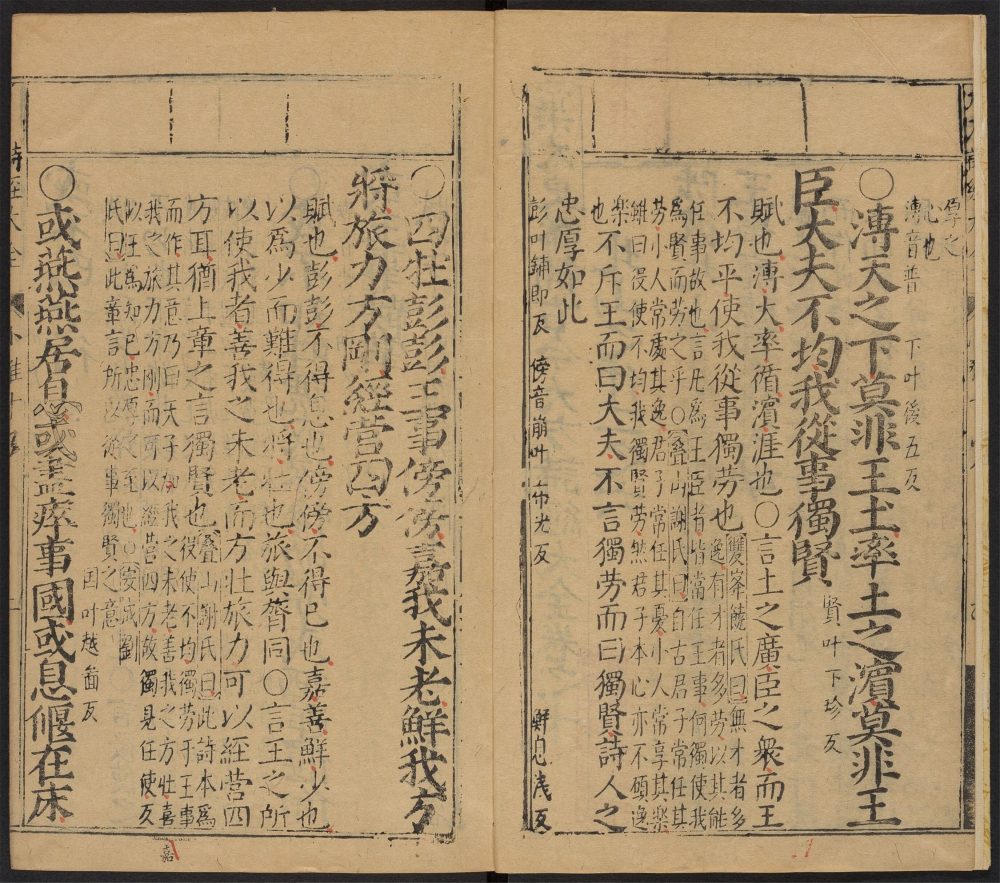 厚之
心也
溥音普 下叶後五反
○溥天之下莫非王土率土之濱莫非王
臣大夫不均我從事獨賢
賢叶下珍反
賦也溥大率循濱涯也○言土之廣臣之衆而王
不均平使我從事獨勞也
雙峯饒氏曰無才者多
逸有才者多勞以其能
任事故也言凡爲王臣者皆當任王事何獨使我
爲賢而勞之乎○疊山謝氏曰自古君子常任其
勞小人常處其逸君子常任其憂小人常享其樂
雖曰役使不均我獨賢勞然君子本心亦不願逸
樂
也
不斥王而曰大夫不言獨勞而曰獨賢詩人之
忠厚如此
彭叶鋪郎反 傍音崩叶布光反 鮮息淺反
○四牡彭彭王事傍傍嘉我未老鮮我方
將旅力方剛經營四方
賦也彭彭不得息也傍傍不得已也嘉善鮮少也
以爲少而難得也將壯也旅與膂同○言王之所
以使我者善我之未老而方壯旅力可以經營四
方耳猶上章之言獨賢也
疊山謝氏曰此詩本爲
役使不均獨勞于王事
而作其意乃曰天子嘉我之未老善我之方壯喜
我之旅力方剛而可以經營四方故獨見任使反
以王爲知己忠厚之至也○安成劉
氏曰此章言所以從事獨賢之意
國叶越逼反
○或燕燕居息或盡瘁事國或息偃在床
詩經大全
小雅十
嘉